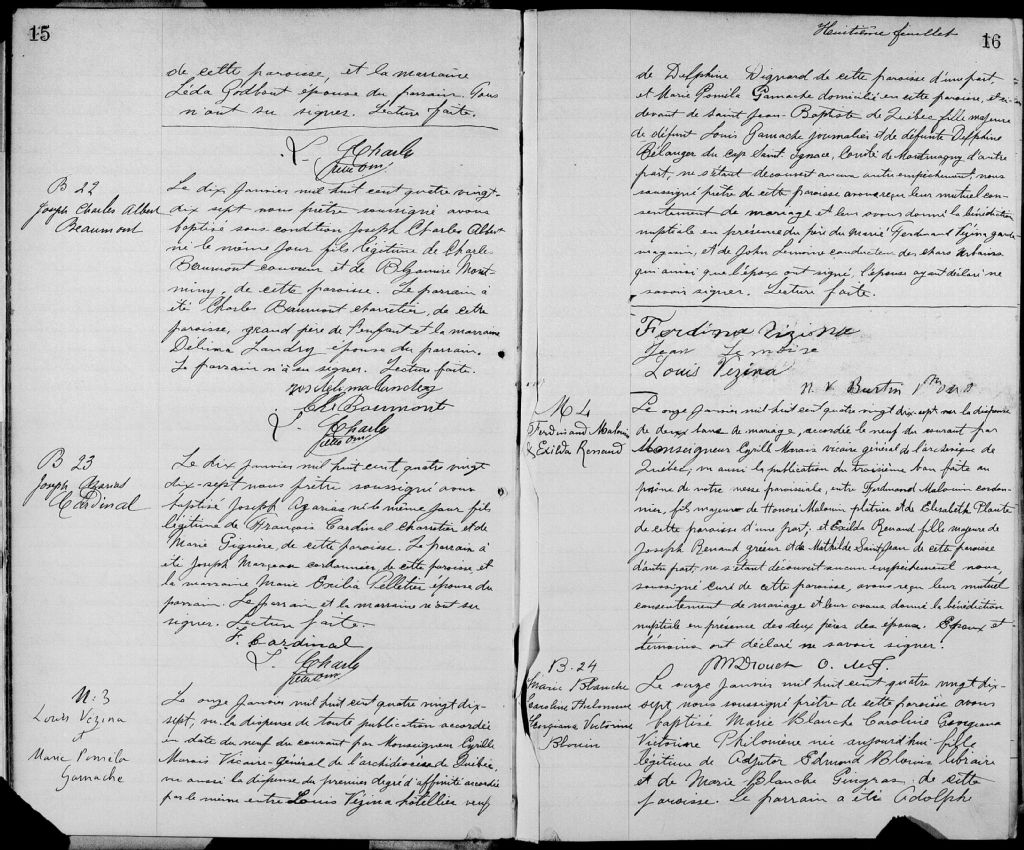 15
de cette paroisse, et la marraine
Léda Godbout épouse du parrain. Tous
n'ont su signer. Lecture faite.
B 22
Joseph Charles Albert
Beaumont
Le dix Janvier mil huit cent quatre vingt-
dix sept nous prêtre soussigné avons
baptisé sous condition Joseph Charles Albert
né le même jour fils légitime de Charles
Beaumont couvreur et de Mont-
miny, de cette paroisse. Le parrain a
été Charles Beaumont charretier, de cette
paroisse, grand père de l'enfant et la marraine
Délima Landry épouse du parrain.
Le parrain n'a su signer. Lecture faite.
Chs Beaumont
B 23
Joseph Azarias
Cardinal
Le dix Janvier mil huit cent quatre vingt
dix-sept nous prêtre soussigné avons
baptisé Joseph Azarias né le même jour fils
légitime de François Cardinal charretier et de
Marie Giguère, de cette paroisse. Le parrain a
été Joseph Marceau cordonnier, de cette paroisse, et
la marraine Marie Exilia Pelletier épouse du
parrain. Le parrain et la marraine n'ont su
signer. Lecture faite.
F. Cardinal
M. 3
Louis Vézina
et
Marie Poméla
Gamache
Le onze Janvier mil huit cent quatre vingt dix-
sept, vu la dispense de toute publication accordée
en date du neuf du courant par Monseigneur Cyrille
Marais Vicaire-Général de l'archidiocèse de Québec,
vu aussi la dispense du premier degré d'affinité accordée
par le même entre Louis Vézina hôtellier veuf
Huitième feuillet
16
de Delphine Dignard de cette paroisse d'une part,
et Marie Poméla Gamache domiciliée en cette paroisse, et ci-
devant de Saint Jean-Baptiste de Québec fille majeure
de défunt Louis Gamache journalier et de défunte Delphine
Bélanger du Cap Saint Ignace, Comté de Montmagny d'autre
part, ne s'étant découvert aucun autre empêchement, nous
soussigné prêtre de cette paroisse avons reçu leur mutuel con-
sentement de mariage et leur avons donné la bénédiction
nuptiale en présence du père du marié Ferdinand Vézina garde-
magasin, et de John Lemoine conducteur des chars urbains
qui ainsi que l'époux ont signé, l'épouse ayant déclaré ne
savoir signer. Lecture faite.
Ferdina Vizina
Jean Lemoine
Louis Vezina
M 4
Ferdinand Malouin
& Exilda Renaud
Le onze Janvier mil huit cent quatre vingt dix sept, vu la dispense
de deux bans de mariage, accordée le neuf du courant par
Monseigneur Cyrille Marais vicaire général de l'archevêque de
Québec, vu aussi la publication du troisième ban faite au
prône de notre messe paroissiale, entre Ferdinand Malouin cordon-
nier, fils majeur de Honoré Malouin plâtrier et de Elisabeth Plante
de cette paroisse d'une part; et Exilda Renaud fille majeure de
Joseph Renaud gréeur et de Mathilde Saint Jean de cette paroisse
d'autre part, ne s'étant découvert aucun empêchement nous,
soussigné curé de cette paroisse, avons reçu leur mutuel
consentement de mariage et leur avons donné la bénédiction
nuptiale en présence des deux pères des époux. Epoux et
témoins ont déclaré ne savoir signer.
B. 24
Marie Blanche
Caroline Philomène
Georgiana Victorine
Blouin
Le onze Janvier mil huit cent quatre vingt dix-
sept, nous soussigné prêtre de cette paroisse avons
baptisé Marie Blanche Caroline Georgiana
Victorine Philomène née aujourd'hui fille
légitime de Adjutor Edmond Blouin libraire
et de Marie Blanche Gingras de cette
paroisse. Le parrain a été Adolphe